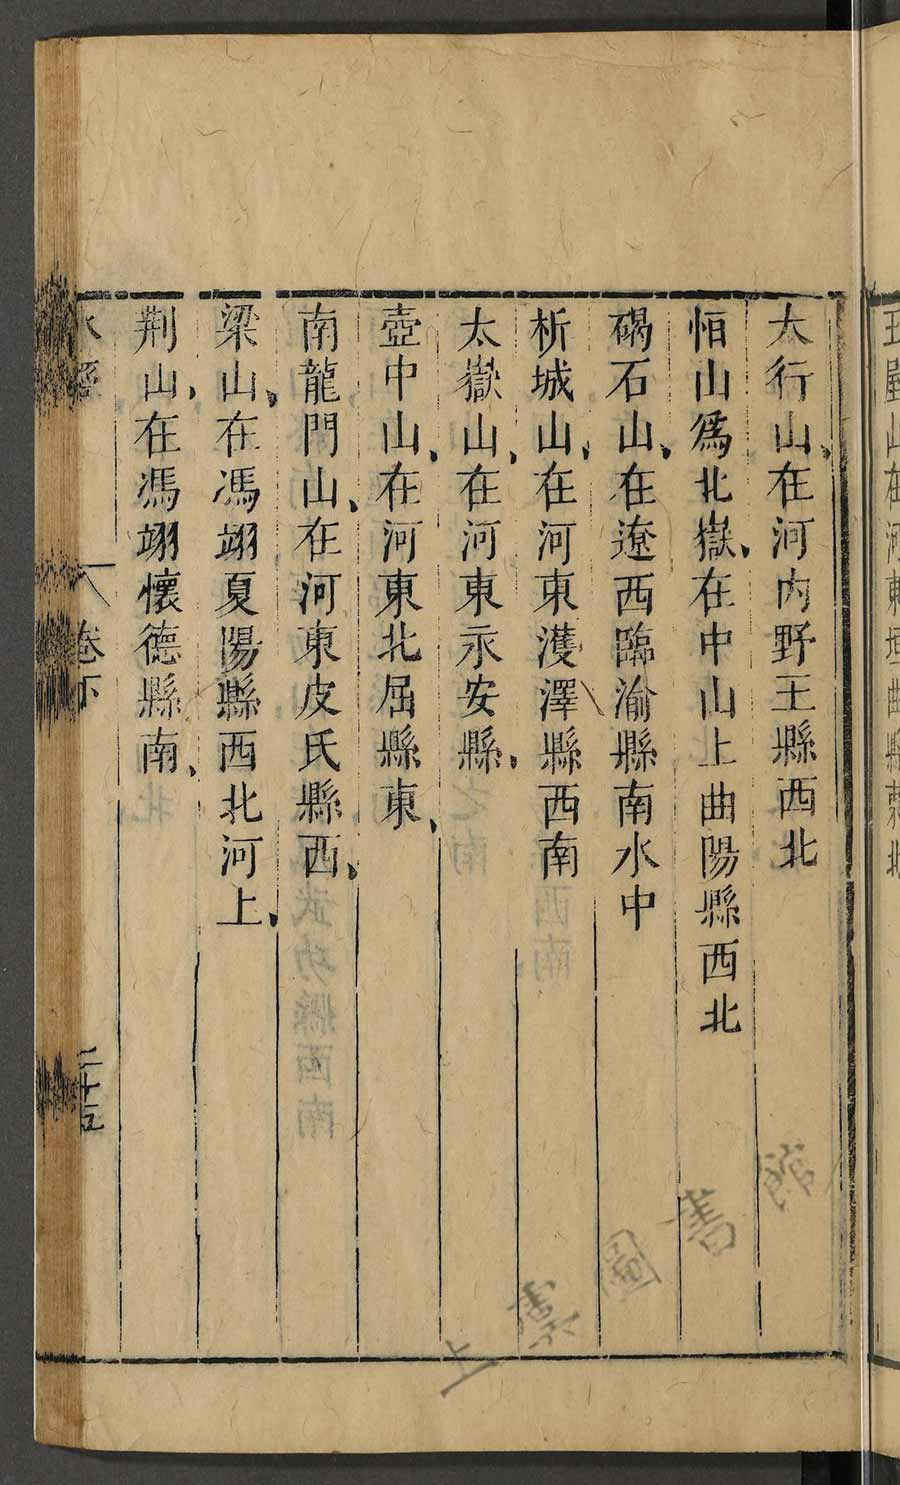 太行山、在河内野王縣西北
恒山爲北嶽、在中山上曲陽縣西北
碣石山、在遼西臨渝縣南水中
析城山、在河東濩澤縣西南
太嶽山、在河東永安縣、
壺中山、在河東北屈縣東、
南龍門山、在河東皮氏縣西、
梁山、在馮翊夏陽縣西北河上、
荆山、在馮翊懷德縣南、
水經
卷下
二十五
上虞圖書館